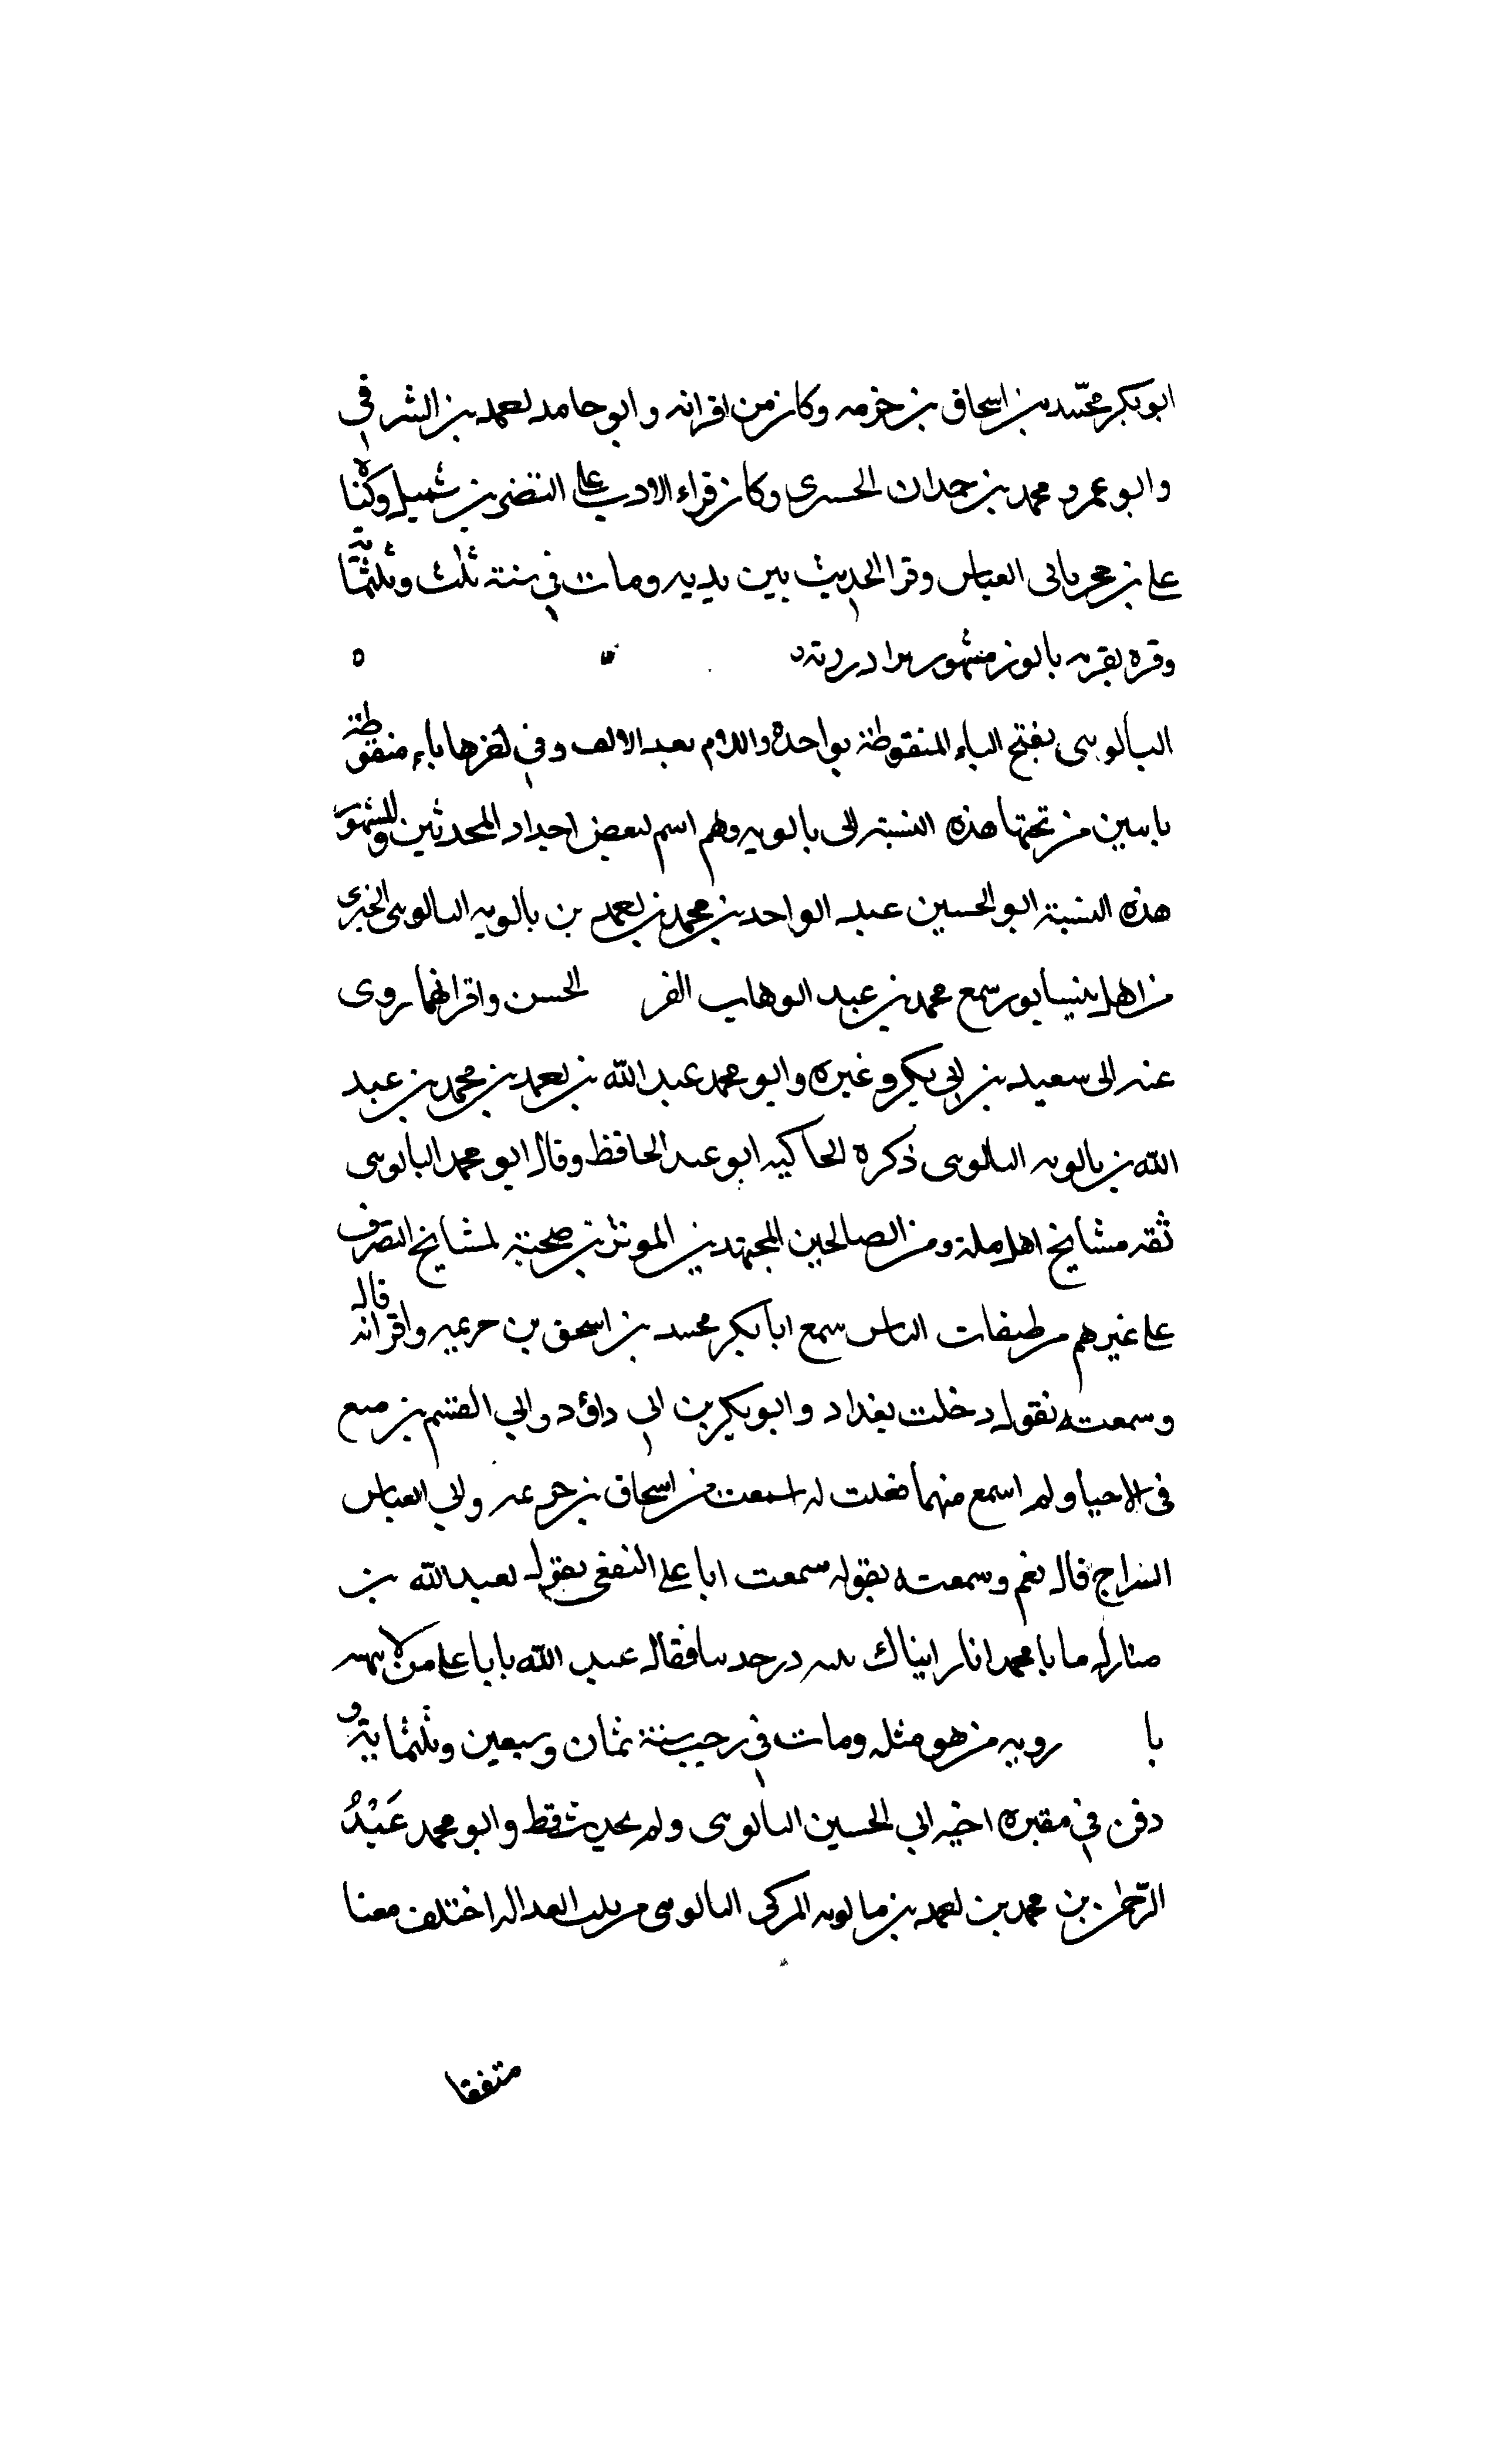 ابو بكر محمد بن اسحاق بن خزيمه وكان من اقرانه وابو حامد احمد بن الشرقي
وابو عمرو محمد بن حمدان الحسرى وكان قراء الادب على النضر بن شميل وكنا
على بن حجر بابى العباس وقرا الحديث بين يديه ومات في سنة ثلث وثلثمائة
وقره بقريه بالوز مشهور
البالوى بفتح الباء المنقوطة بواحدة واللام بعد الالف وفي اخرها باء منقوطة
باسين من تحتها هذه النسبة الى بالويه وهم اسم لبعض اجداد المحدثين والمشهور
هذه النسبة ابو الحسين عبد الواحد بن محمد بن احمد بن بالويه البالوى
من اهل نيسابور سمع محمد بن عبد الوهاب الفر الحسن واقرانهما روى
عنه ابى سعيد بن ابي بكر وغيره وابو محمد عبد الله بن احمد بن محمد بن عبد
الله بن بالويه البالوى ذكره الحاكم ابو عبد الحافظ وقال ابو محمد البالوى
ثقه مشايخ اهل ملة ومن الصالحين المجتهدين المونثر بن صحبة لمشايخ التصرف
على غيرهم من طبقات الناس سمع ابا بكر محمد بن اسحق بن خزيمه واقرانه قال
وسمعته يقول دخلت بغداد وابو بكر بن ابي داؤد وابي القسم بن منيع
فى الاحيا ولم اسمع منهما فقلت له اسمعت من اسحاق بن خزيمه وابي العباس
السراج قال نعم وسمعته يقول سمعت ابا على الثقفى يقول لعبد الله بن
منازل ما با محمد انا رايناك درجد فقال عبد الله يا با على من لا
با رويه من هو مثله ومات في رجب سنة ثمان وسبعين وثلثماية و
دفن في مقبره اخيه ابي الحسين البالوى ولم يحدث قط وابو محمد عَبْدُ
الرحمن بن محمد بن احمد بن بالويه المزكى البالوى من بيت العداله اختلف معنا
متفقا